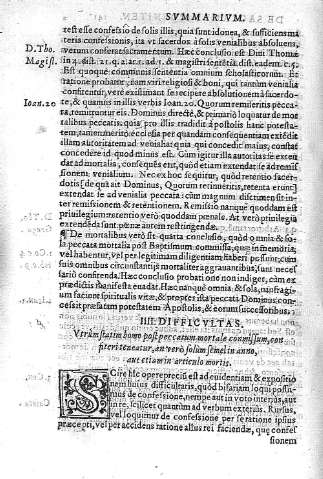 SVMMARIVM.
test esse confessio de solis illis, quia sunt idonea, & sufficiens ma
teria confessionis, ita vt sacerdos à solis venialibus absoluens,
verum conferat Sacramentũ. Hæc conclusio est Diui Thomæ
D.Tho.
in 4. dist. 21. q. 2. ar. 1. ad. 1. & magistri sentẽtiã dist. eadem. c. 5.
Magist.
Est quoque communis sententia omnium scholasticorum. Et
ratione probatur, nam viri religiosi & boni, qui tantum venialia
confitentur, verè existimant se recipere absolutionem à sacerdo
Ioan.20
te, & quamuis in illis verbis Ioan. 20. Quorum remiseritis pecca
ta, remittuntur eis. Dominus directè, & primariò loquatur de mor
talibus peccatis: quia pro illis tradidit Apostolis hanc potesta-
tem, tamen meritò ecclesia per quandam consequentiam extẽdit
illam autoritatem ad venialia: quia qui concedit maius, constat
concedere id quod minus est. Cùm igitur illa autoritas se exten
dat ad mortalia, consequẽs est, quòd etiam extendat se ad remis
sionem venialium. Nec ex hoc sequitur, quòd retentio sacer-
dotis [de qua ait Dominus, Quorum retinueritis, retenta erunt]
extendat se ad venialia peccata: cùm magnum discrimen sit in-
ter remissionem & retentionem. Remissio nanque quoddam est
priuilegium: retentio verò quoddam pœnale. At verò priuilegia
extendẽda sunt: pœnæ autem restringendæ.
¶ De mortalibus verò sit quarta conclusio, quòd omnia & so-
la peccata mortalia post Baptismum commissa, quæ in memoria,
vel habentur, vel per legitimam diligentiam haberi possunt, cum
suis omnibus circunstantijs mortaliter aggrauantibus, sunt neces
sariò confitenda. Hæc conclusio probatione non indiget, cùm ex
prædictis manifesta euadat. Hæc nanque omnia, & sola, naufragi-
um faciunt spiritualis vitæ, & propter ista peccata Dominus con-
cessit præfatam potestatem Apostolis, & eorum successoribus.
IIII. DIFFICVLTAS.
Vtrum statim homo post peccatum mortale commissum, con
fiteri teneatur, an verò solùm semel in anno,
aut etiam in articulo mortis.
SCire hîc operepreciũ est ad euidentiam & expositio
nem huius difficultatis, quòd bifariam loqui possu-
mus de confessione, nempe aut in voto interiùs, aut
in re, scilicet quantum ad verbum exteriùs. Rursus,
vel loquimur de confessione per se ratione ipsius
præcepti, vel per accidens ratione alius rei faciendæ, quę confes
sionem